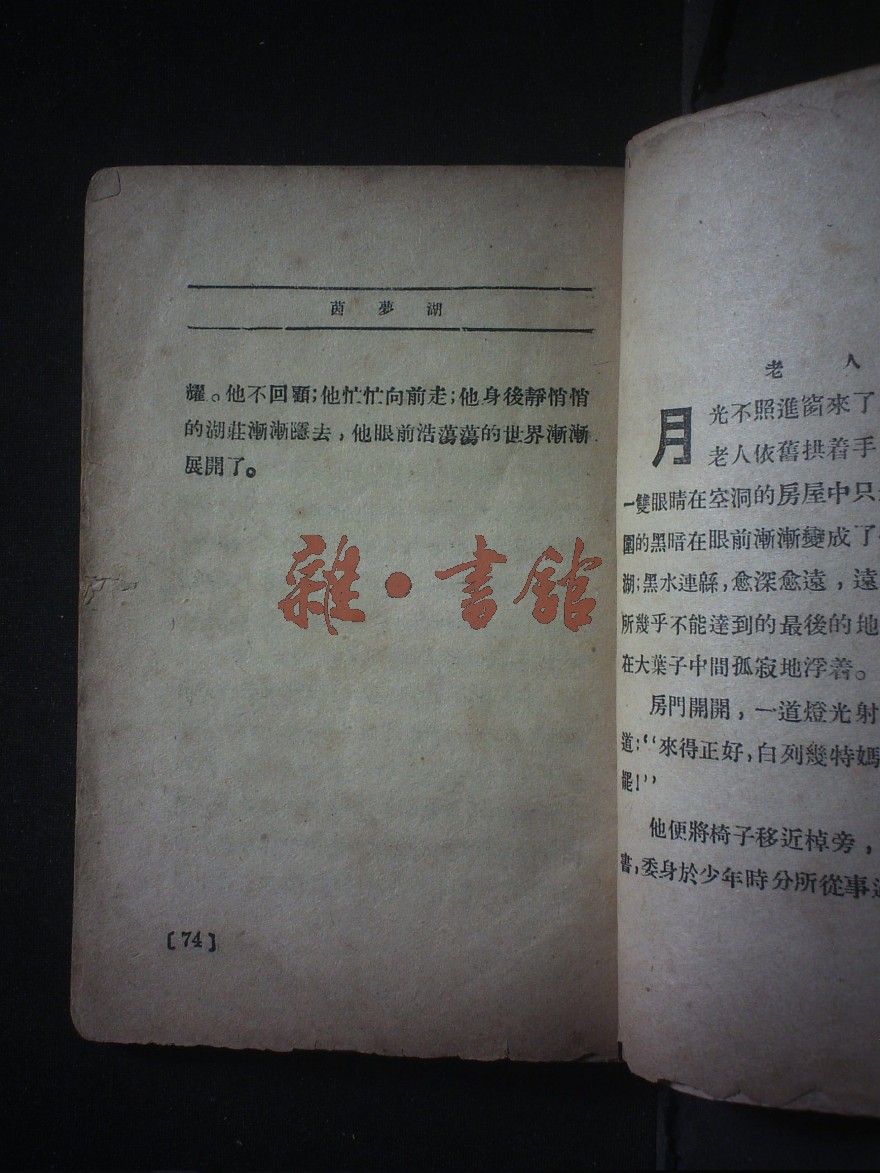 茵夢湖
耀。他不回顧;他忙忙向前走;他身後靜悄悄
的湖莊漸漸隱去,他眼前浩蕩蕩的世界漸漸
展開了。
[74]
雜·書館
老人
月光不照進窗來了
老人依舊拱着手
一雙眼睛在空洞的房屋中只
圍的黑暗在眼前漸漸變成了
湖;黑水連緜,愈深愈遠,遠
所幾乎不能達到的最後的地
在大葉子中間孤寂地浮着。
房門開開,一道燈光射
道:“來得正好,白列幾特媽
罷!”
他便將椅子移近棹旁,
書,委身於少年時分所從事